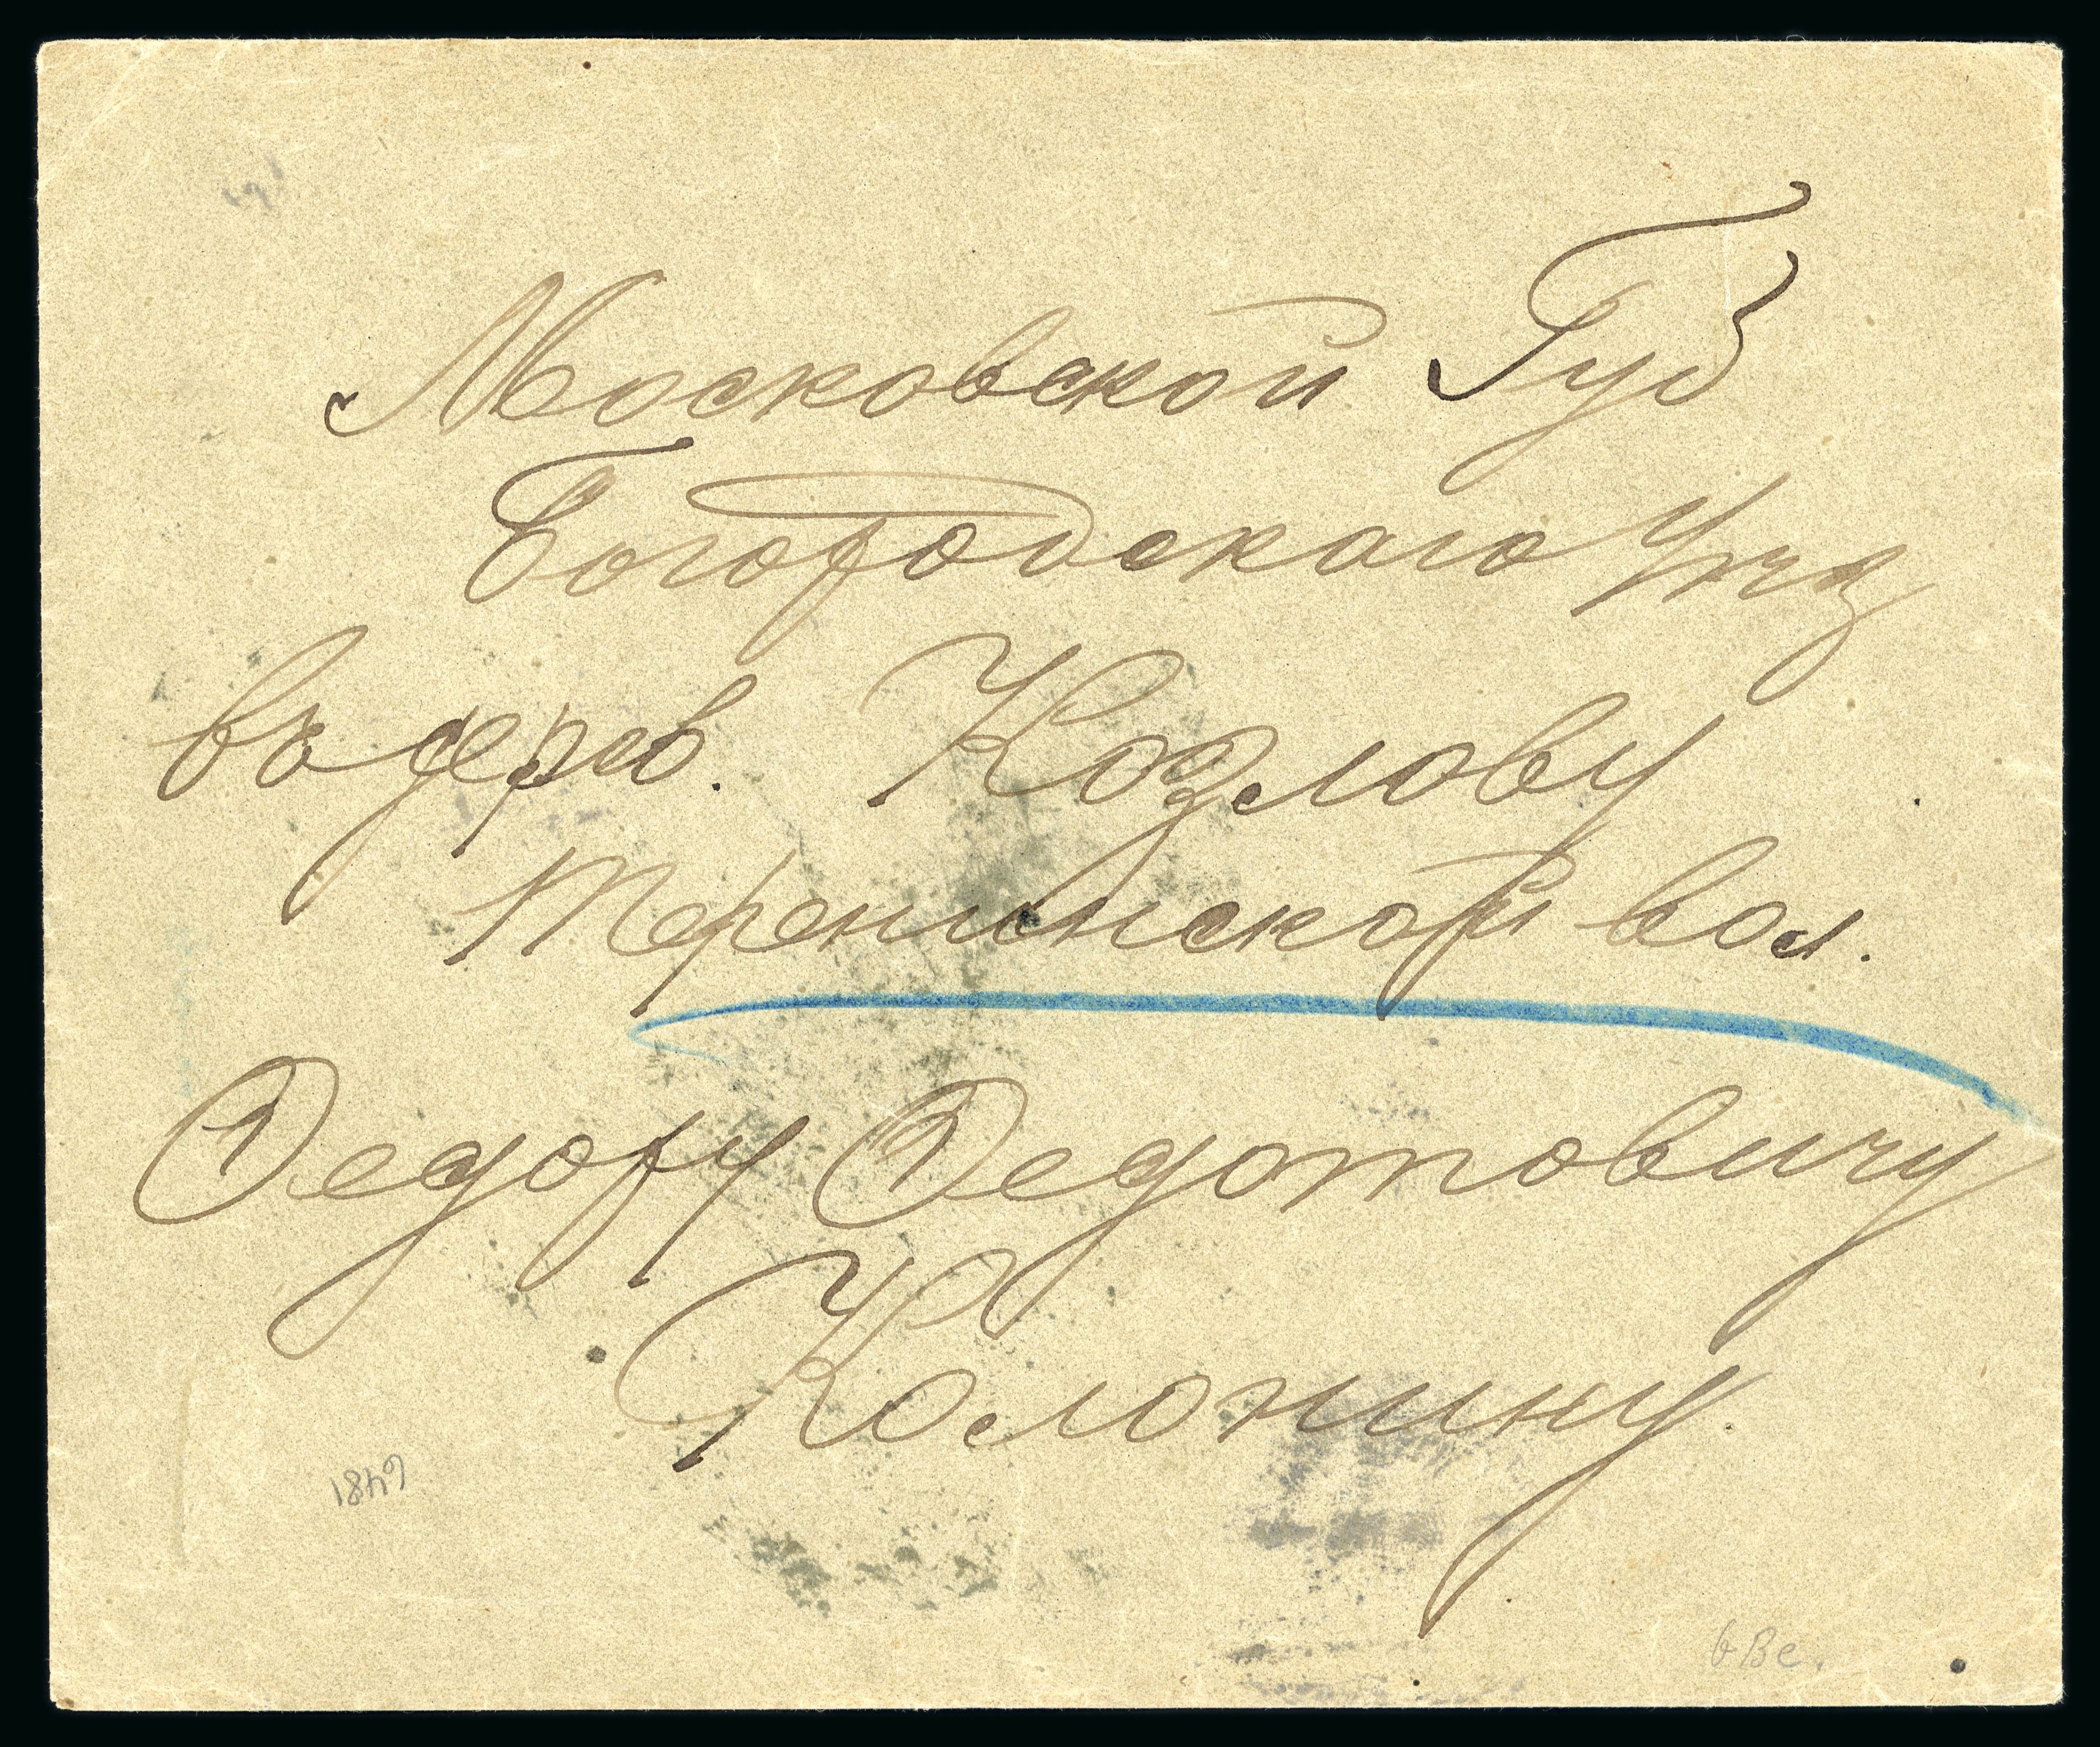 Московской Губ
Богородскаго Уѣз
въ дерев. Козлову
Теренинской вол.
Федору Федотовичу
Колонину.
1849